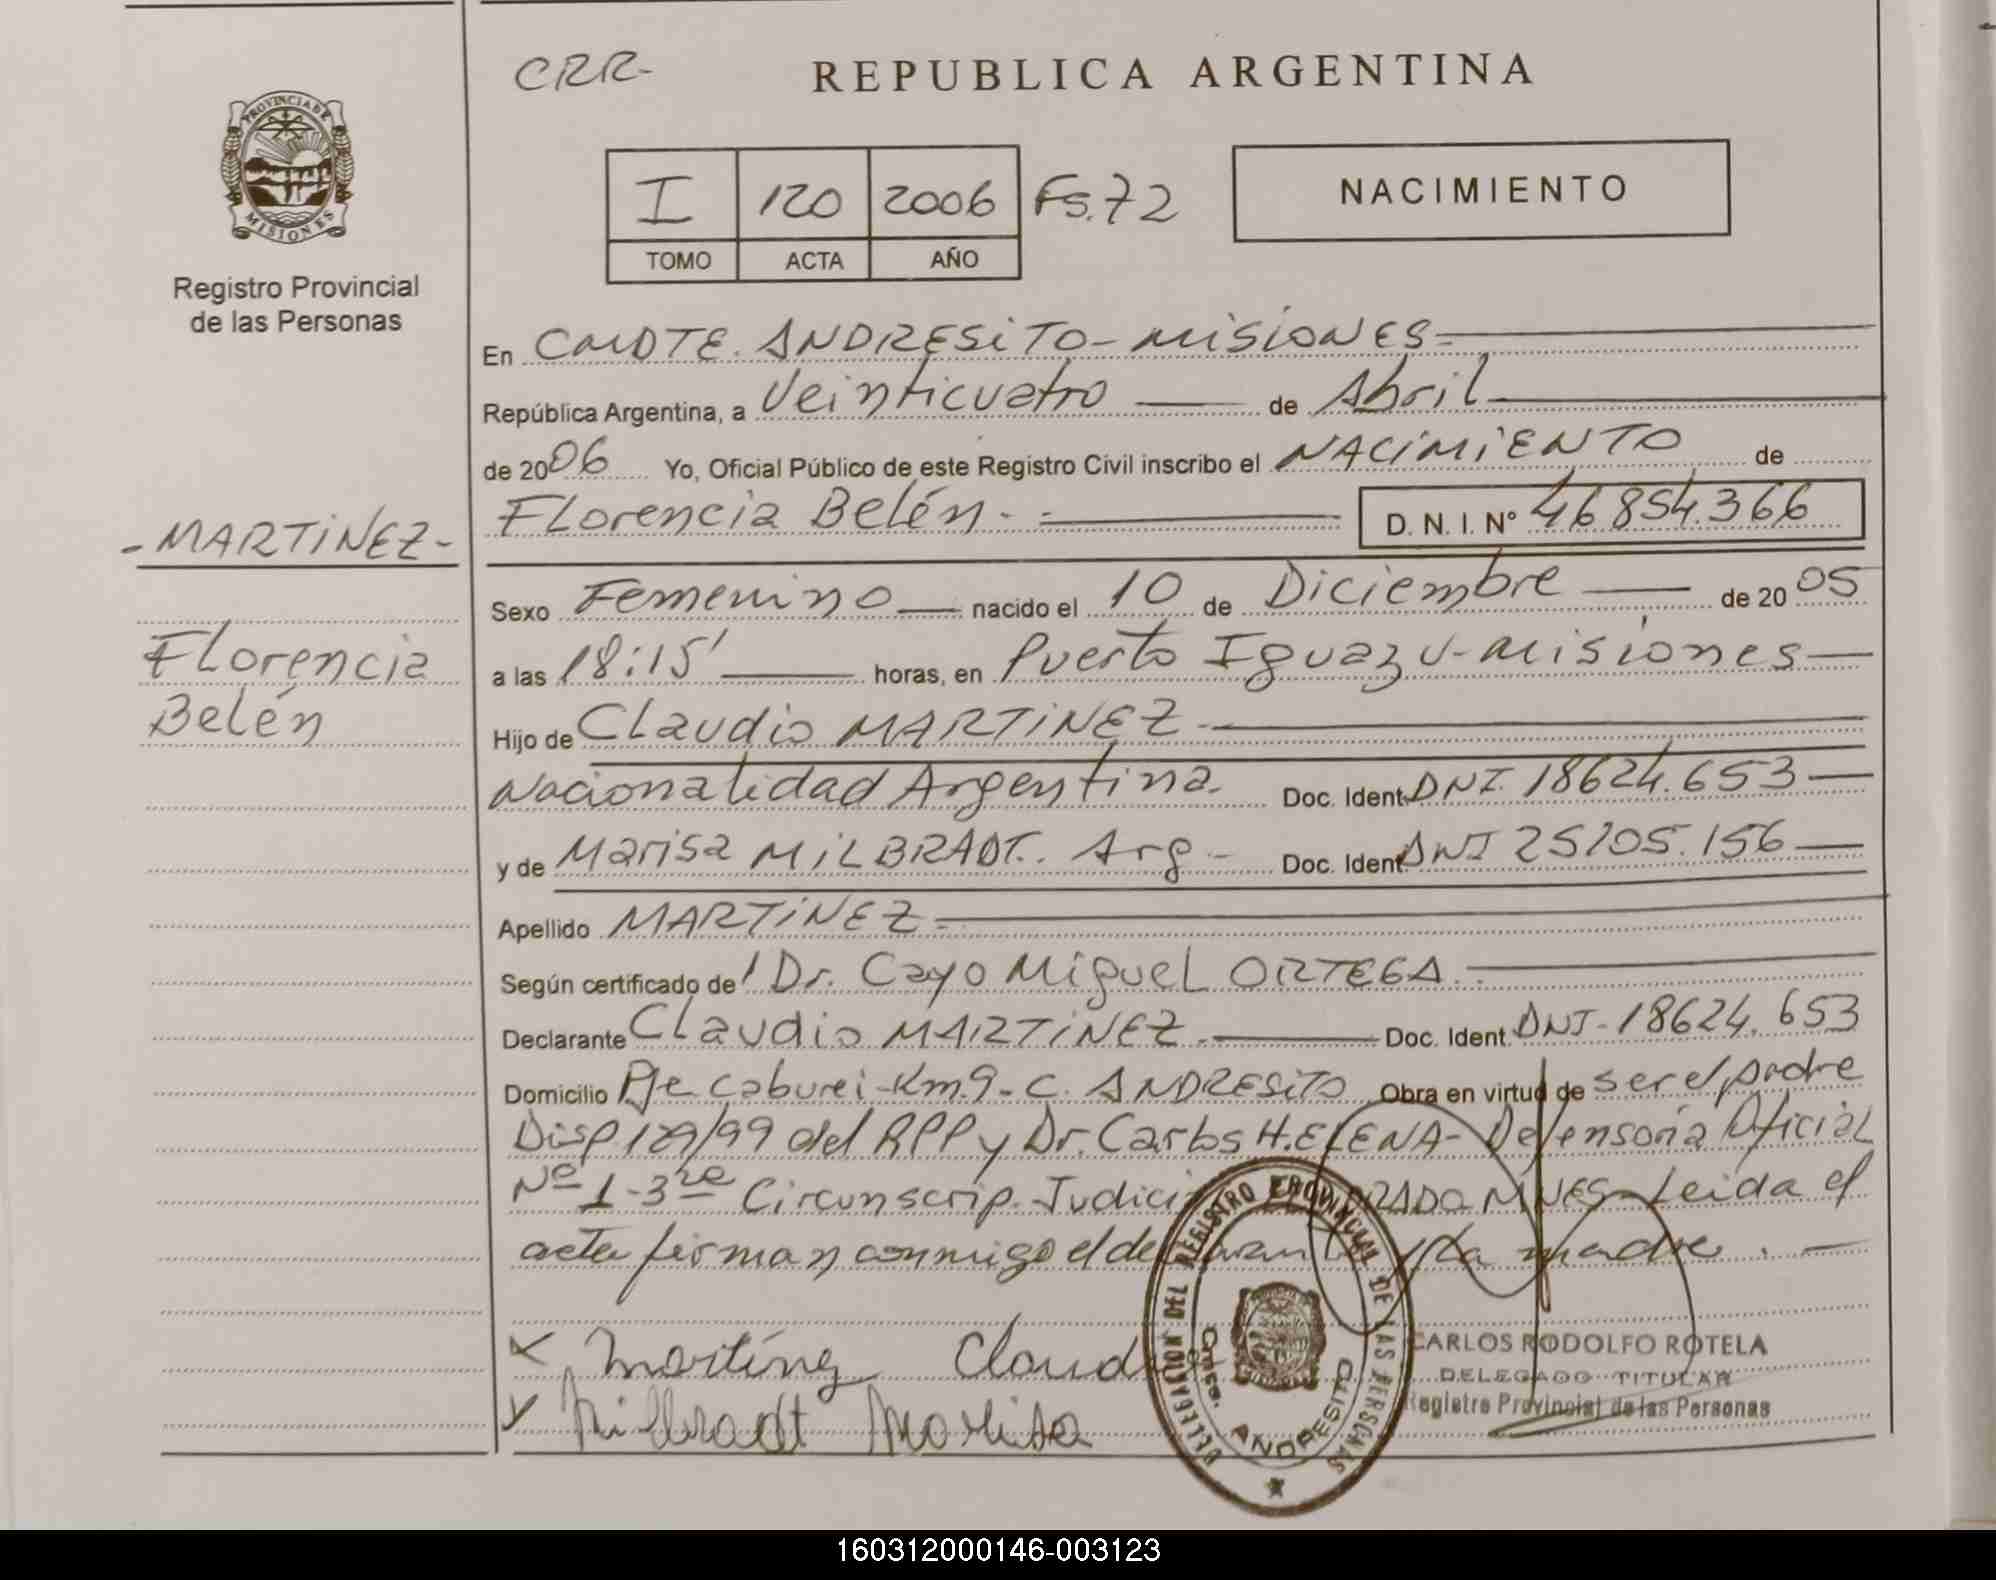 CRR-
REPUBLICA ARGENTINA
PROVINCIA DE
MISIONES
Registro Provincial
de las Personas
I 120 2006 Fs.72
TOMO ACTA AÑO
NACIMIENTO
En CMDTE. ANDRESiTO-MiSiONES
República Argentina, a Veinticuatro de Abril
de 2006 Yo, Oficial Público de este Registro Civil inscribo el NACiMiENTO de
-MARTiNEZ-
Florencia Belén- D. N. I. N° 46854.366
Sexo Femenino nacido el 10 de Diciembre de 2005
Florencia
Belén
a las 18:15' horas, en Puerto Iguazu-Misiones
Hijo de Claudio MARTiNEZ-
Nacionalidad Argentina. Doc. Ident. DNI. 18624.653
y de Marisa MiLBRADT. Arg- Doc. Ident. DNI 25205.156
Apellido MARTiNEZ
Según certificado de Dr. Cayo Miguel ORTEGA.
Declarante Claudio MARTiNEZ. Doc. Ident. DNI-18624.653
Domicilio Pje Caburei-Km.9-C. ANDRESiTO Obra en virtud de ser el padre
Disp.129/99 del RPP y Dr. Carlos H. ELENA- Defensoria Oficial
Nº 1-3ra Circunscrip. Judici RADO MNES-Leida el
acta firman conmigo el de y la madre.
x Martínez Claud
x Milbradt Marisa
DELEGACION DEL REGISTRO PROVINCIAL DE LAS PERSONAS
Cmte. ANDRESITO
CARLOS RODOLFO ROTELA
DELEGADO TITULAR
Registro Provincial de las Personas
160312000146-003123